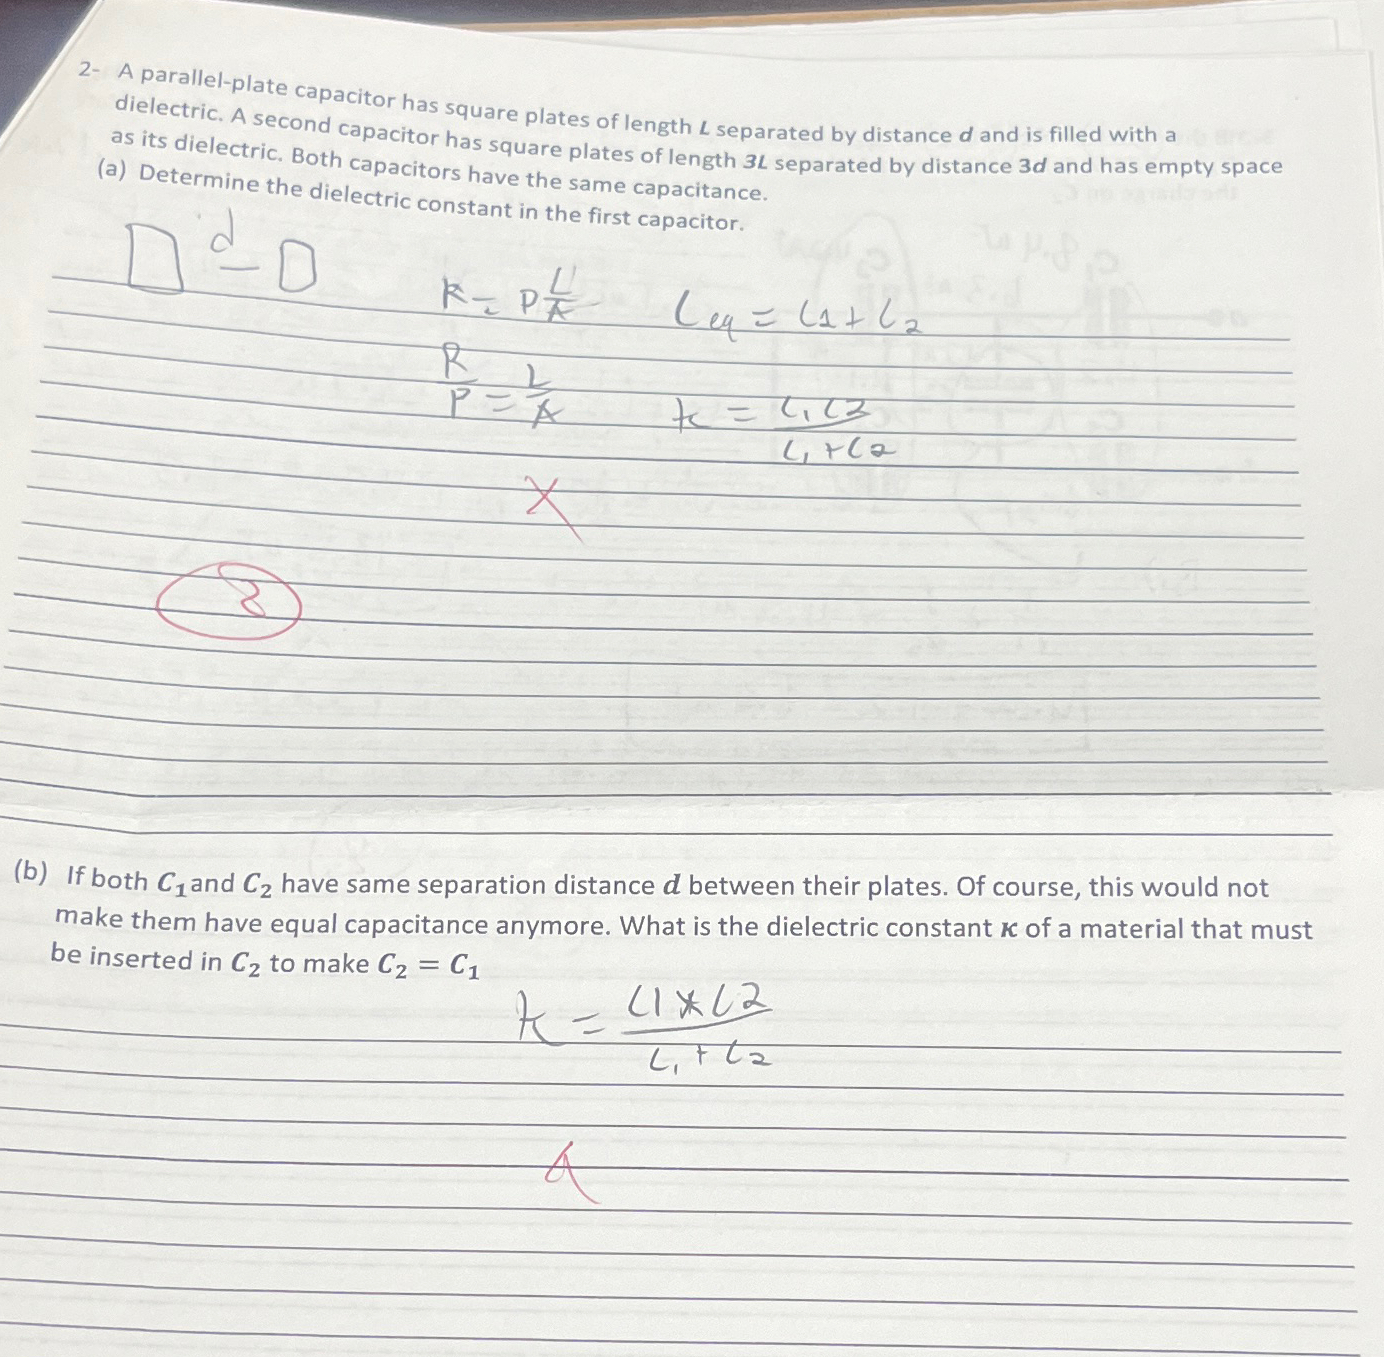 2- A parallel-plate capacitor has square plates of length L separated by distance d and is filled with a
dielectric. A second capacitor has square plates of length 3L separated by distance 3d and has empty space
as its dielectric. Both capacitors have the same capacitance.
(a) Determine the dielectric constant in the first capacitor.
d
R = P L/A
C eq = C1 + C2
R/P = L/A
k = C1 C2 / C1 + C2
(b) If both C₁and C₂ have same separation distance d between their plates. Of course, this would not
make them have equal capacitance anymore. What is the dielectric constant κ of a material that must
be inserted in C₂ to make C₂ = C₁
k = C1 * C2 / C1 + C2